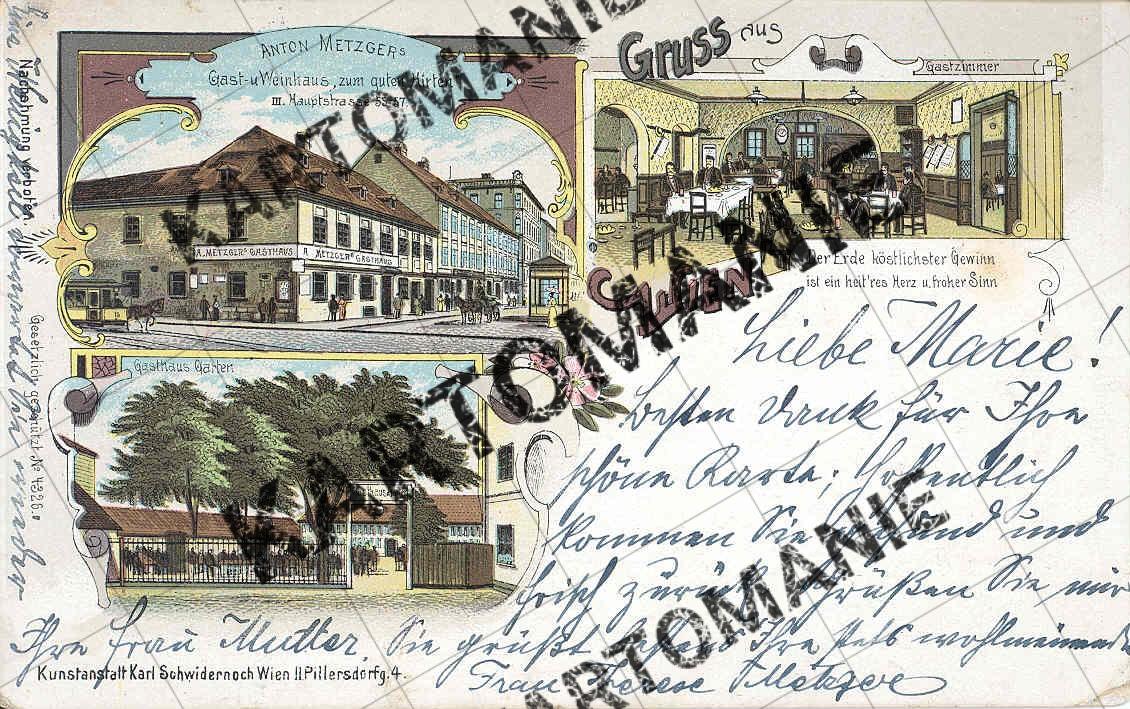 ANTON METZGERS
Gast-u Weinhaus, zum guten Hirten
III. Hauptstrasse 55-57
Gruss aus
WIEN
Gastzimmer
A. METZGERS GASTHAUS
A METZGERS GASTHAUS
Der Erde köstlichster Gewinn
ist ein heit'res Herz u. froher Sinn
Gasthaus Garten
Liebe Marie!
Besten Dank für Ihre
schöne Karte; hoffentlich
kommen Sie gesund und
frisch zurück. Grüßen Sie mir
Ihre Frau Mutter. Sie grüßt bestens Ihre stets wohlmeinende
Frau Therese Metzger
Kunstanstalt Karl Schwidernoch Wien II. Pillersdorfg. 4.
Nachahmung verboten
Gesetzlich geschützt No 4226.
KARTOMANIE
KARTOMANIE
KARTOMANIE
KARTOMANIE